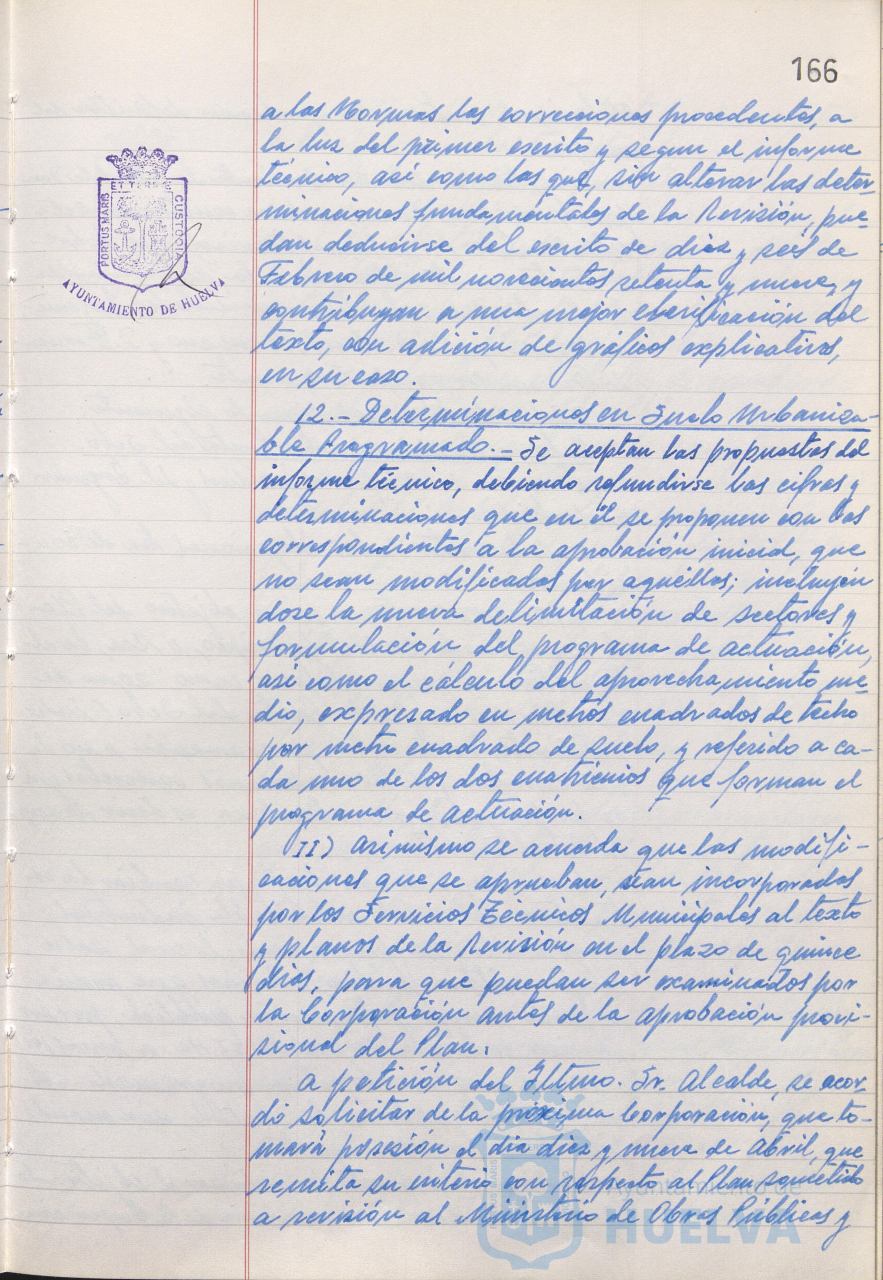 166
a las Normas las correcciones procedentes, a
la luz del primer escrito y segun el informe
técnico, así como las que, sin alterar las deter-
minaciones fundamentales de la Revisión, pue-
dan deducirse del escrito de diez y seis de
Febrero de mil novecientos setenta y nueve, y
contribuyan a una mejor clarificación del
texto, con adición de gráficos explicativos,
en su caso.
12.- Determinaciones en Suelo Urbaniza-
ble Programado.- Se aceptan las propuestas del
informe técnico, debiendo refundirse las cifras y
determinaciones que en él se proponen con las
correspondientes a la aprobación inicial, que
no sean modificadas por aquéllas; incluyén
dose la nueva delimitación de sectores y
formulación del programa de actuación,
así como el cálculo del aprovechamiento me-
dio, expresado en metros cuadrados de techo
por metro cuadrado de suelo, y referido a ca-
da uno de los dos cuatrienios que forman el
programa de actuación.
II) Asimismo se acuerda que las modifi-
caciones que se aprueban, sean incorporadas
por los Servicios Técnicos Municipales al texto
y planos de la Revisión en el plazo de quince
días, para que puedan ser examinados por
la Corporación antes de la aprobación provi-
sional del Plan.
A petición del Iltmo. Sr. Alcalde, se acor-
dó solicitar de la próxima Corporación, que to-
mará posesión el día diez y nueve de Abril, que
remita su criterio con respecto al Plan sometido
a revisión al Ministerio de Obras Públicas y
PORTUS MARIS
ET TERRE
CUSTODIA
AYUNTAMIENTO DE HUELVA
Ayuntamiento de
HUELVA